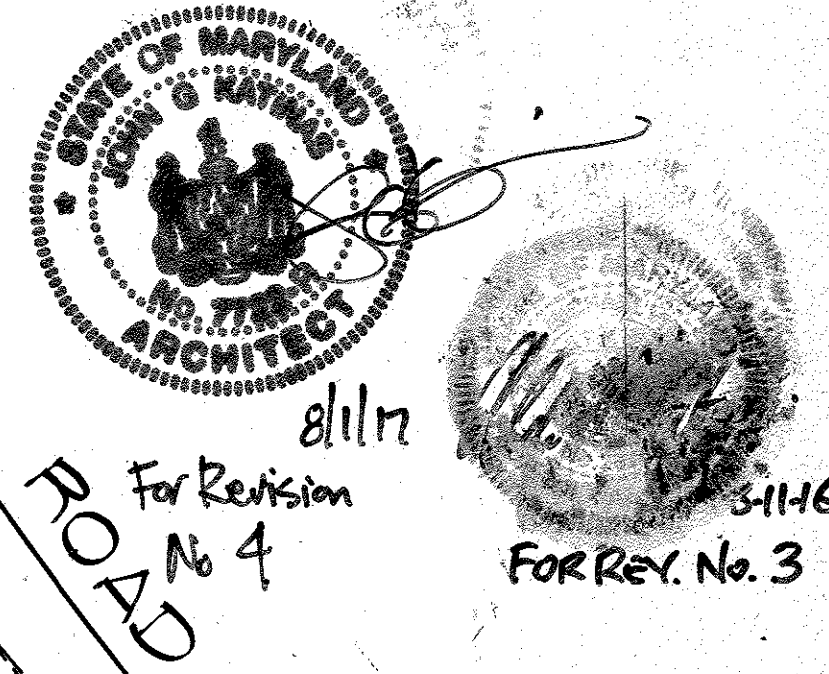 STATE OF MARYLAND
JOHN G KATINAS
ARCHITECT
8/1/17
For Revision
No 4
ROAD
3-11-16
FOR REV. No. 3